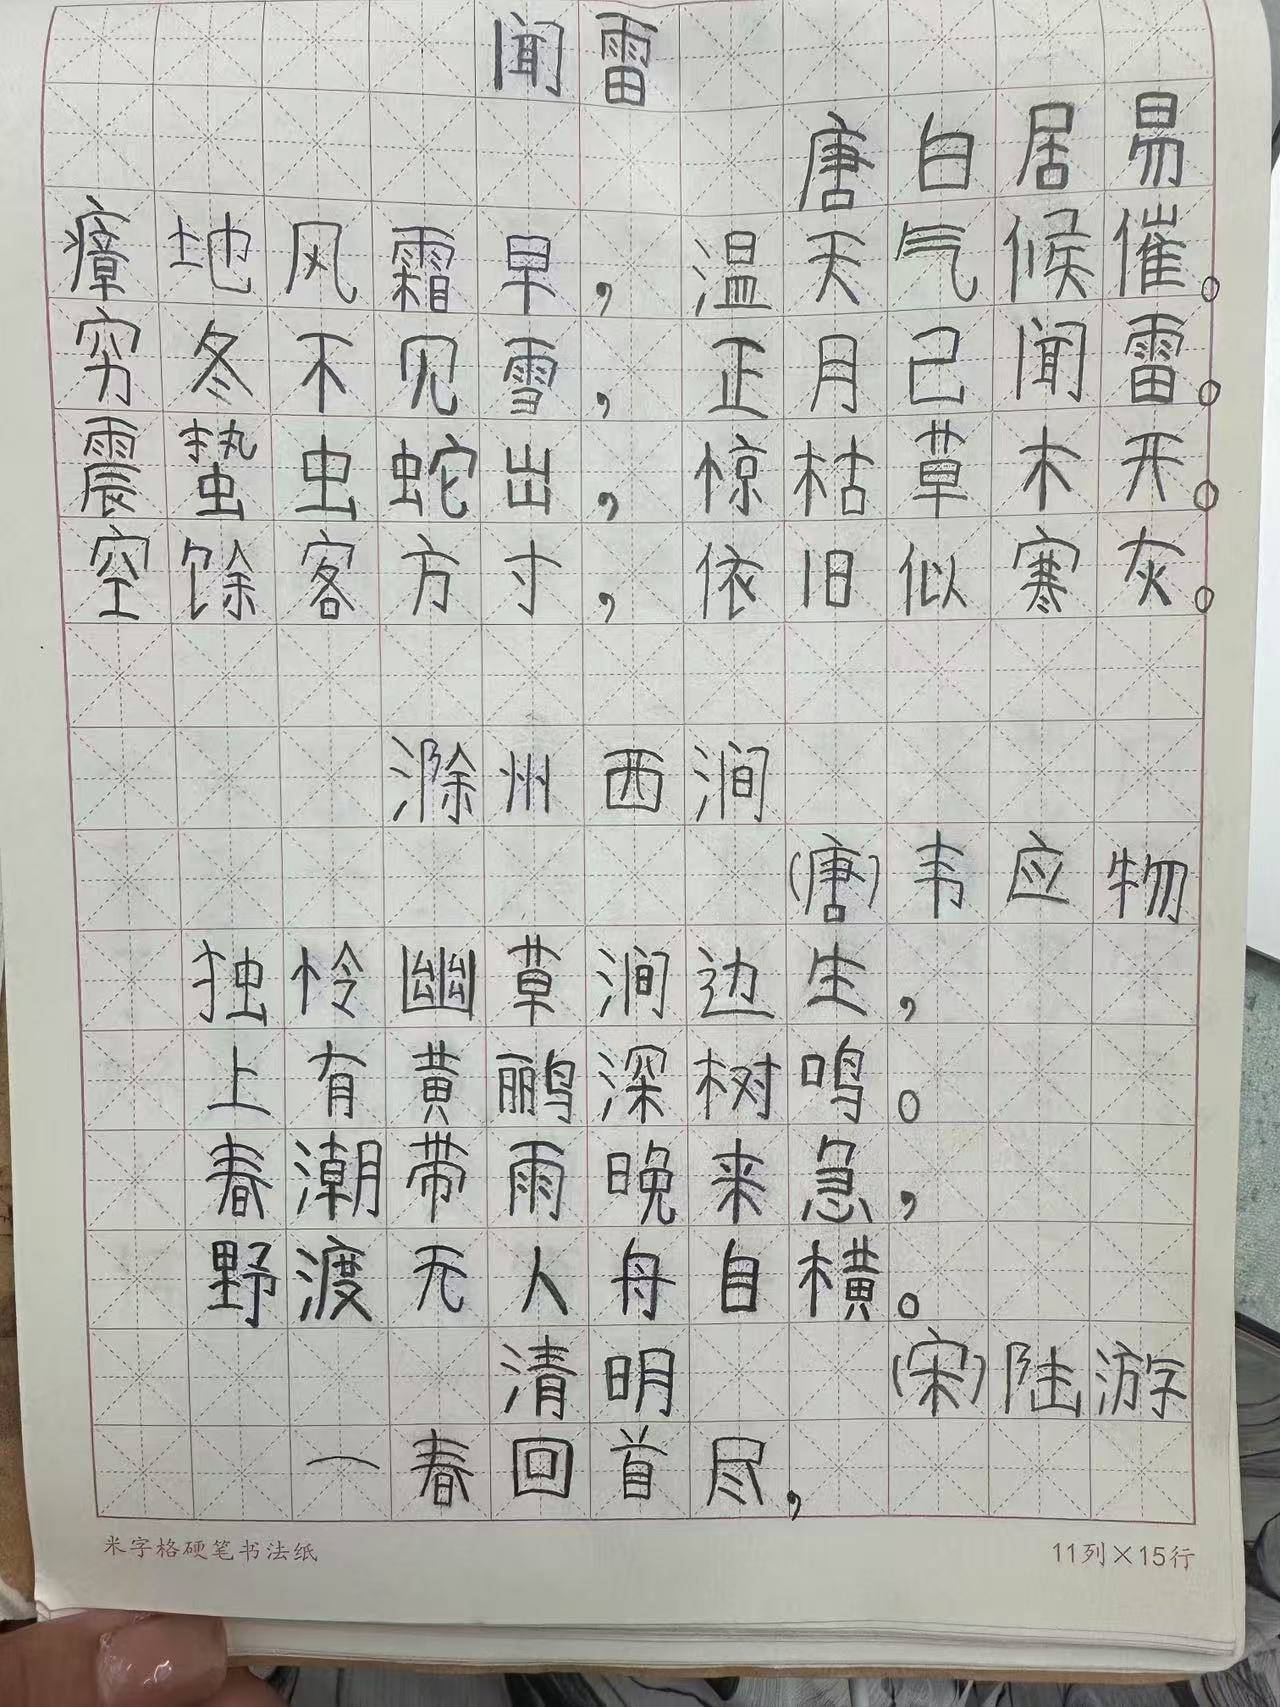 闻雷
唐白居易
瘴地风霜早，温天气候催。
穷冬不见雪，正月己闻雷。
震蛰虫蛇出，惊枯草木开。
空馀客方寸，依旧似寒灰。
滁州西涧
(唐)韦应物
独怜幽草涧边生，
上有黄鹂深树鸣。
春潮带雨晚来急，
野渡无人舟自横。
清明 (宋)陆游
一春回首尽，
米字格硬笔书法纸 11列×15行